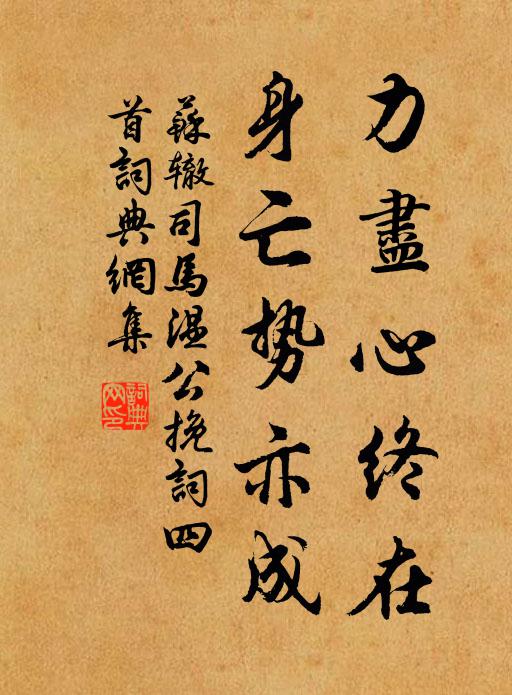 力盡心終在
身亡勢亦成
蘇轍司馬溫公挽詞四
首詞典網集
詞典
网印